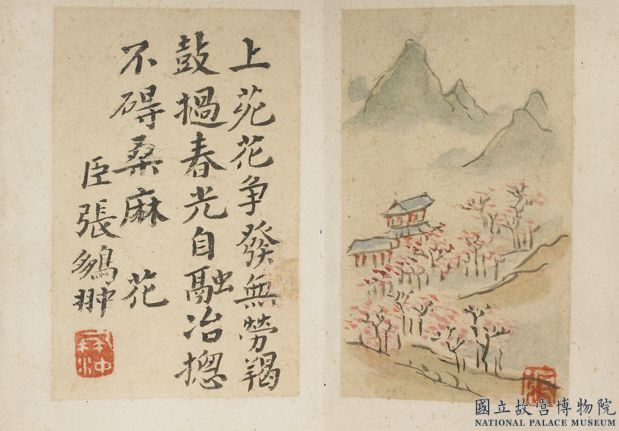 上苑花争發無勞羯
鼓撾春光自融冶揔
不碍桒麻 花
臣張鵬翀
國立故宮博物院
NATIONAL PALACE MUSEUM